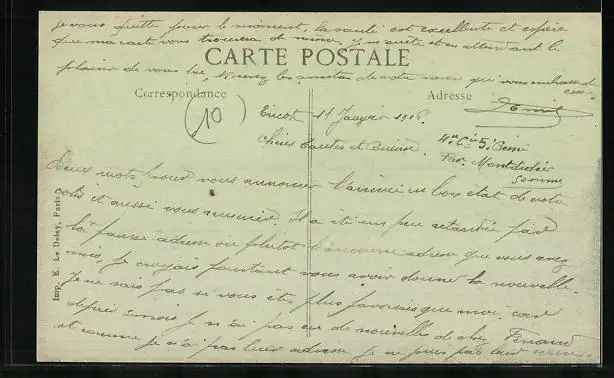 je vous quitte pour le moment, la santé est excellente et espère
que ma carte vous trouvera de même. Je m'arrête et en attendant le
plaisir de vous lire, recevez les amitiés de votre neveu qui vous embrasse de
CARTE POSTALE
Correspondance
Adresse
10
11 Janvier 1916.
Chères Tantes et
Par Montdidier
Somme
Deux mots pour vous annoncer l'arrivée en bon état de votre
colis et aussi vous remercier. Il a été un peu retardé par
la fausse adresse ou plutôt l'ancienne adresse que vous avez
mis, je croyais pourtant vous avoir donné la nouvelle.
Je ne sais pas si vous êtes plus favorisés que moi, car
depuis mois je n'ai pas eu de nouvelle de chez Fernand
et comme je n'ai pas leur adresse je ne puis pas leur
Imp. E. Le Deley, Paris